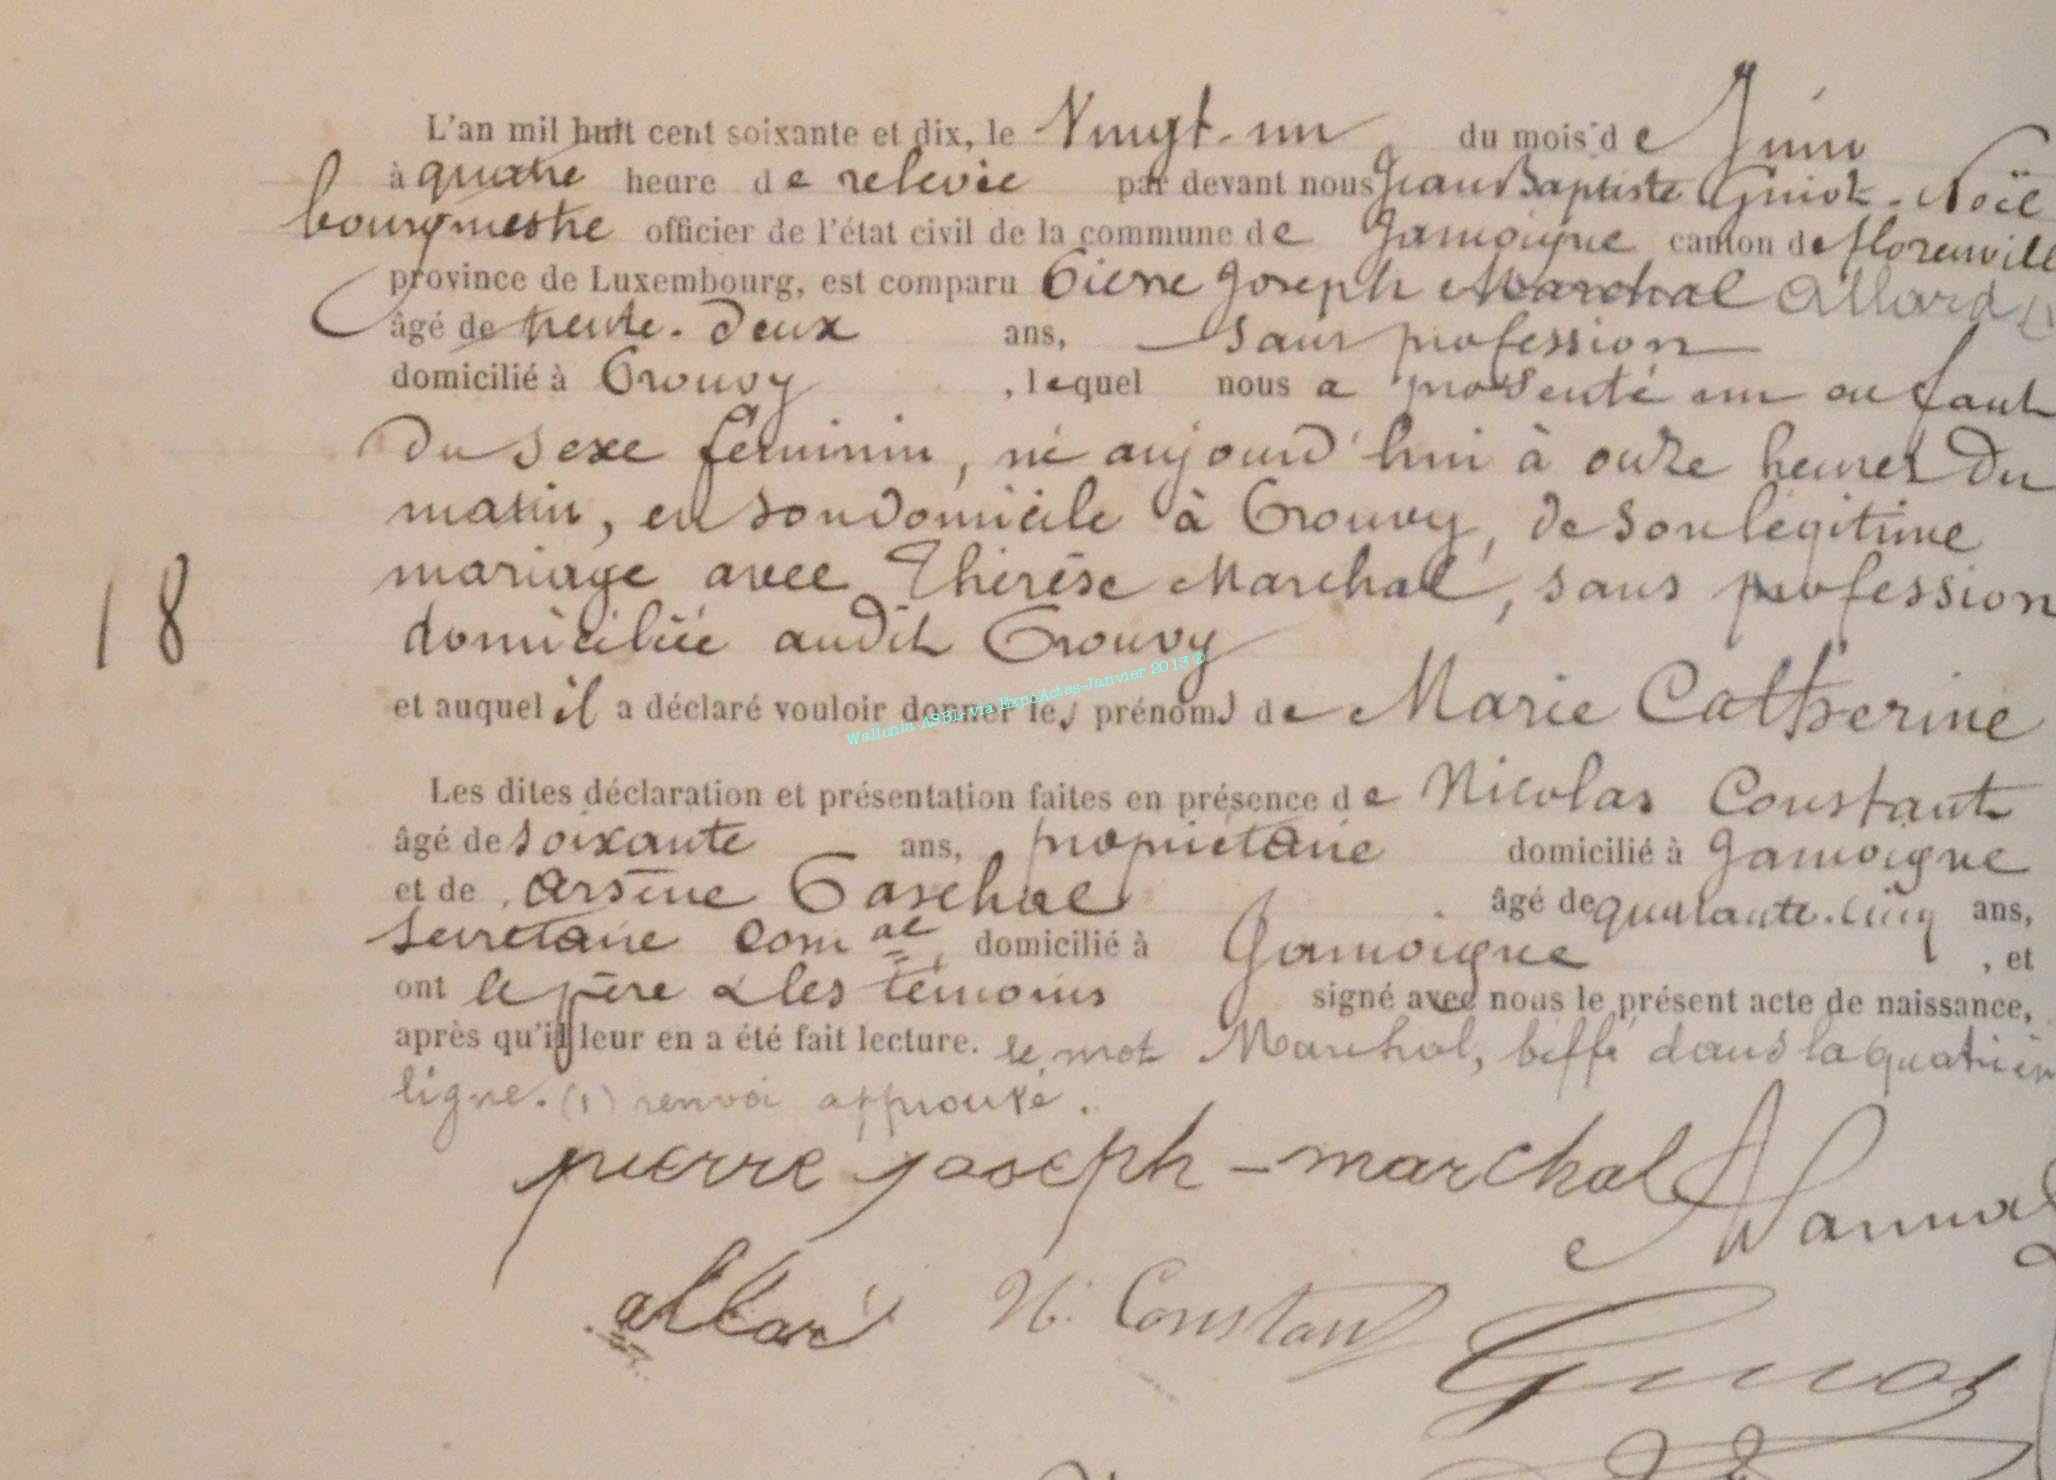 L'an mil huit cent soixante et dix, le Vingt-un du mois de Juin
à quatre heure de relevée par devant nous Jean Baptiste Guiot-Noël
bourgmestre officier de l'état civil de la commune de Jamoigne canton de florenvill
province de Luxembourg, est comparu Pierre Joseph Marchal Allard (1)
âgé de trente-deux ans, sans profession
domicilié à Prouvy, lequel nous a présenté un enfant
du sexe féminin, né aujourd'hui à onze heures du
matin, en son domicile à Prouvy, de son légitime
mariage avec Thérèse Marchal, sans profession
18
domiciliée audit Prouvy
et auquel il a déclaré vouloir donner les prénoms de Marie Catherine
Wallonia ASBL via ExpoActes-Janvier 2013 ©
Les dites déclaration et présentation faites en présence de Nicolas Constant
âgé de soixante ans, propriétaire domicilié à Jamoigne
et de Arsène Paschal âgé de quarante-cinq ans,
secretaire com al, domicilié à Jamoigne, et
ont le père & les témoins signé avec nous le présent acte de naissance,
après qu'il leur en a été fait lecture. le mot Marchal, biffé dans la quatrièm
ligne. (1) renvoi approuvé.
pierre joseph-marchal
allard N. Constant Guiot